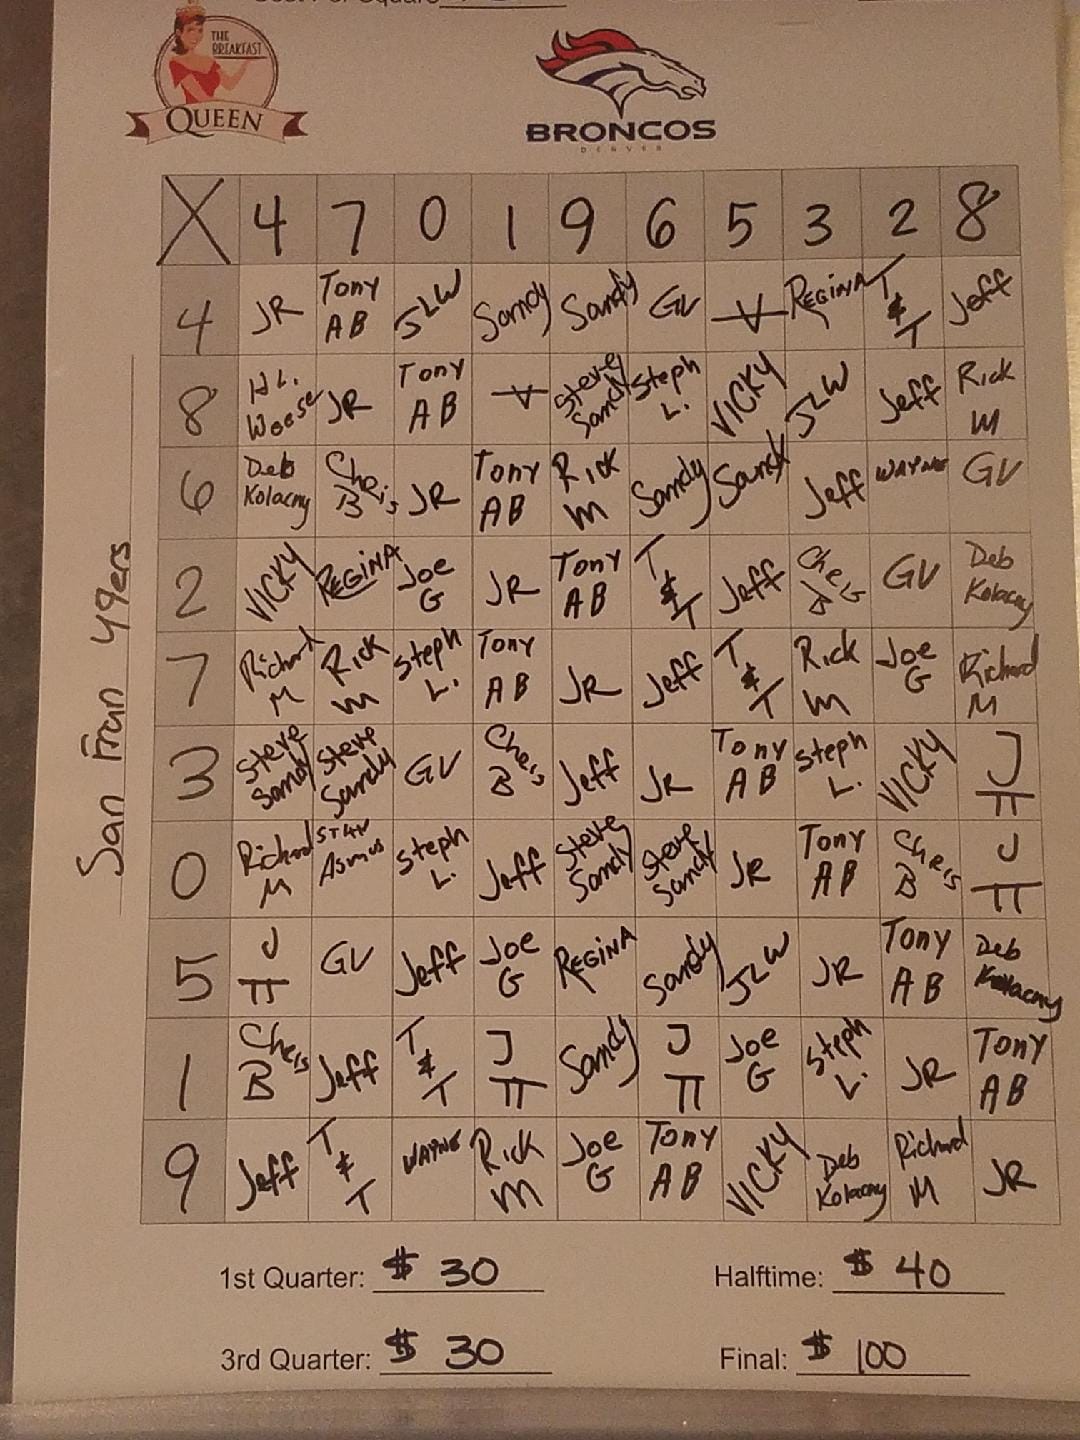 THE
BREAKFAST
QUEEN
BRONCOS
DENVER
San Fran 49ers
X 4 7 0 1 9 6 5 3 2 8
4 JR Tony AB JLW Sandy Sandy GV V REGINA T & T Jeff
8 JR Tony AB V Steve Sandy Steph L. VICKY JLW Jeff Rick M
6 Deb Kolacny Chris B JR Tony AB Rick M Sandy Sandy Jeff WAYNE GV
2 VICKY REGINA Joe G JR Tony AB T & T Jeff Chris B GV Deb Kolacny
7 Richard M Rick M Steph L. Tony AB JR Jeff T & T Rick M Joe G Richard M
3 Steve Sandy Steve Sandy GV Chris B Jeff JR Tony AB Steph L. VICKY J TT
0 Richard M Asmus Steph L. Jeff Steve Sandy Steve Sandy JR Tony AB Chris B J TT
5 J TT GV Jeff Joe G REGINA Sandy JLW JR Tony AB Deb Kolacny
1 Chris B Jeff T & T J TT Sandy J TT Joe G Steph L. JR Tony AB
9 Jeff T & T WAYNE Rick M Joe G Tony AB VICKY Deb Kolacny Richard M JR
1st Quarter: $ 30 Halftime: $ 40
3rd Quarter: $ 30 Final: $ 100